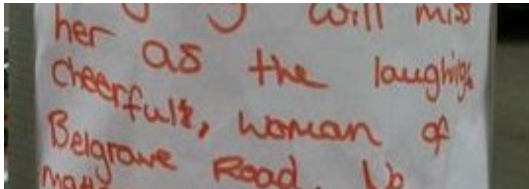 will miss
her as the laughing,
cheerful, woman of
Belgrave Road. No